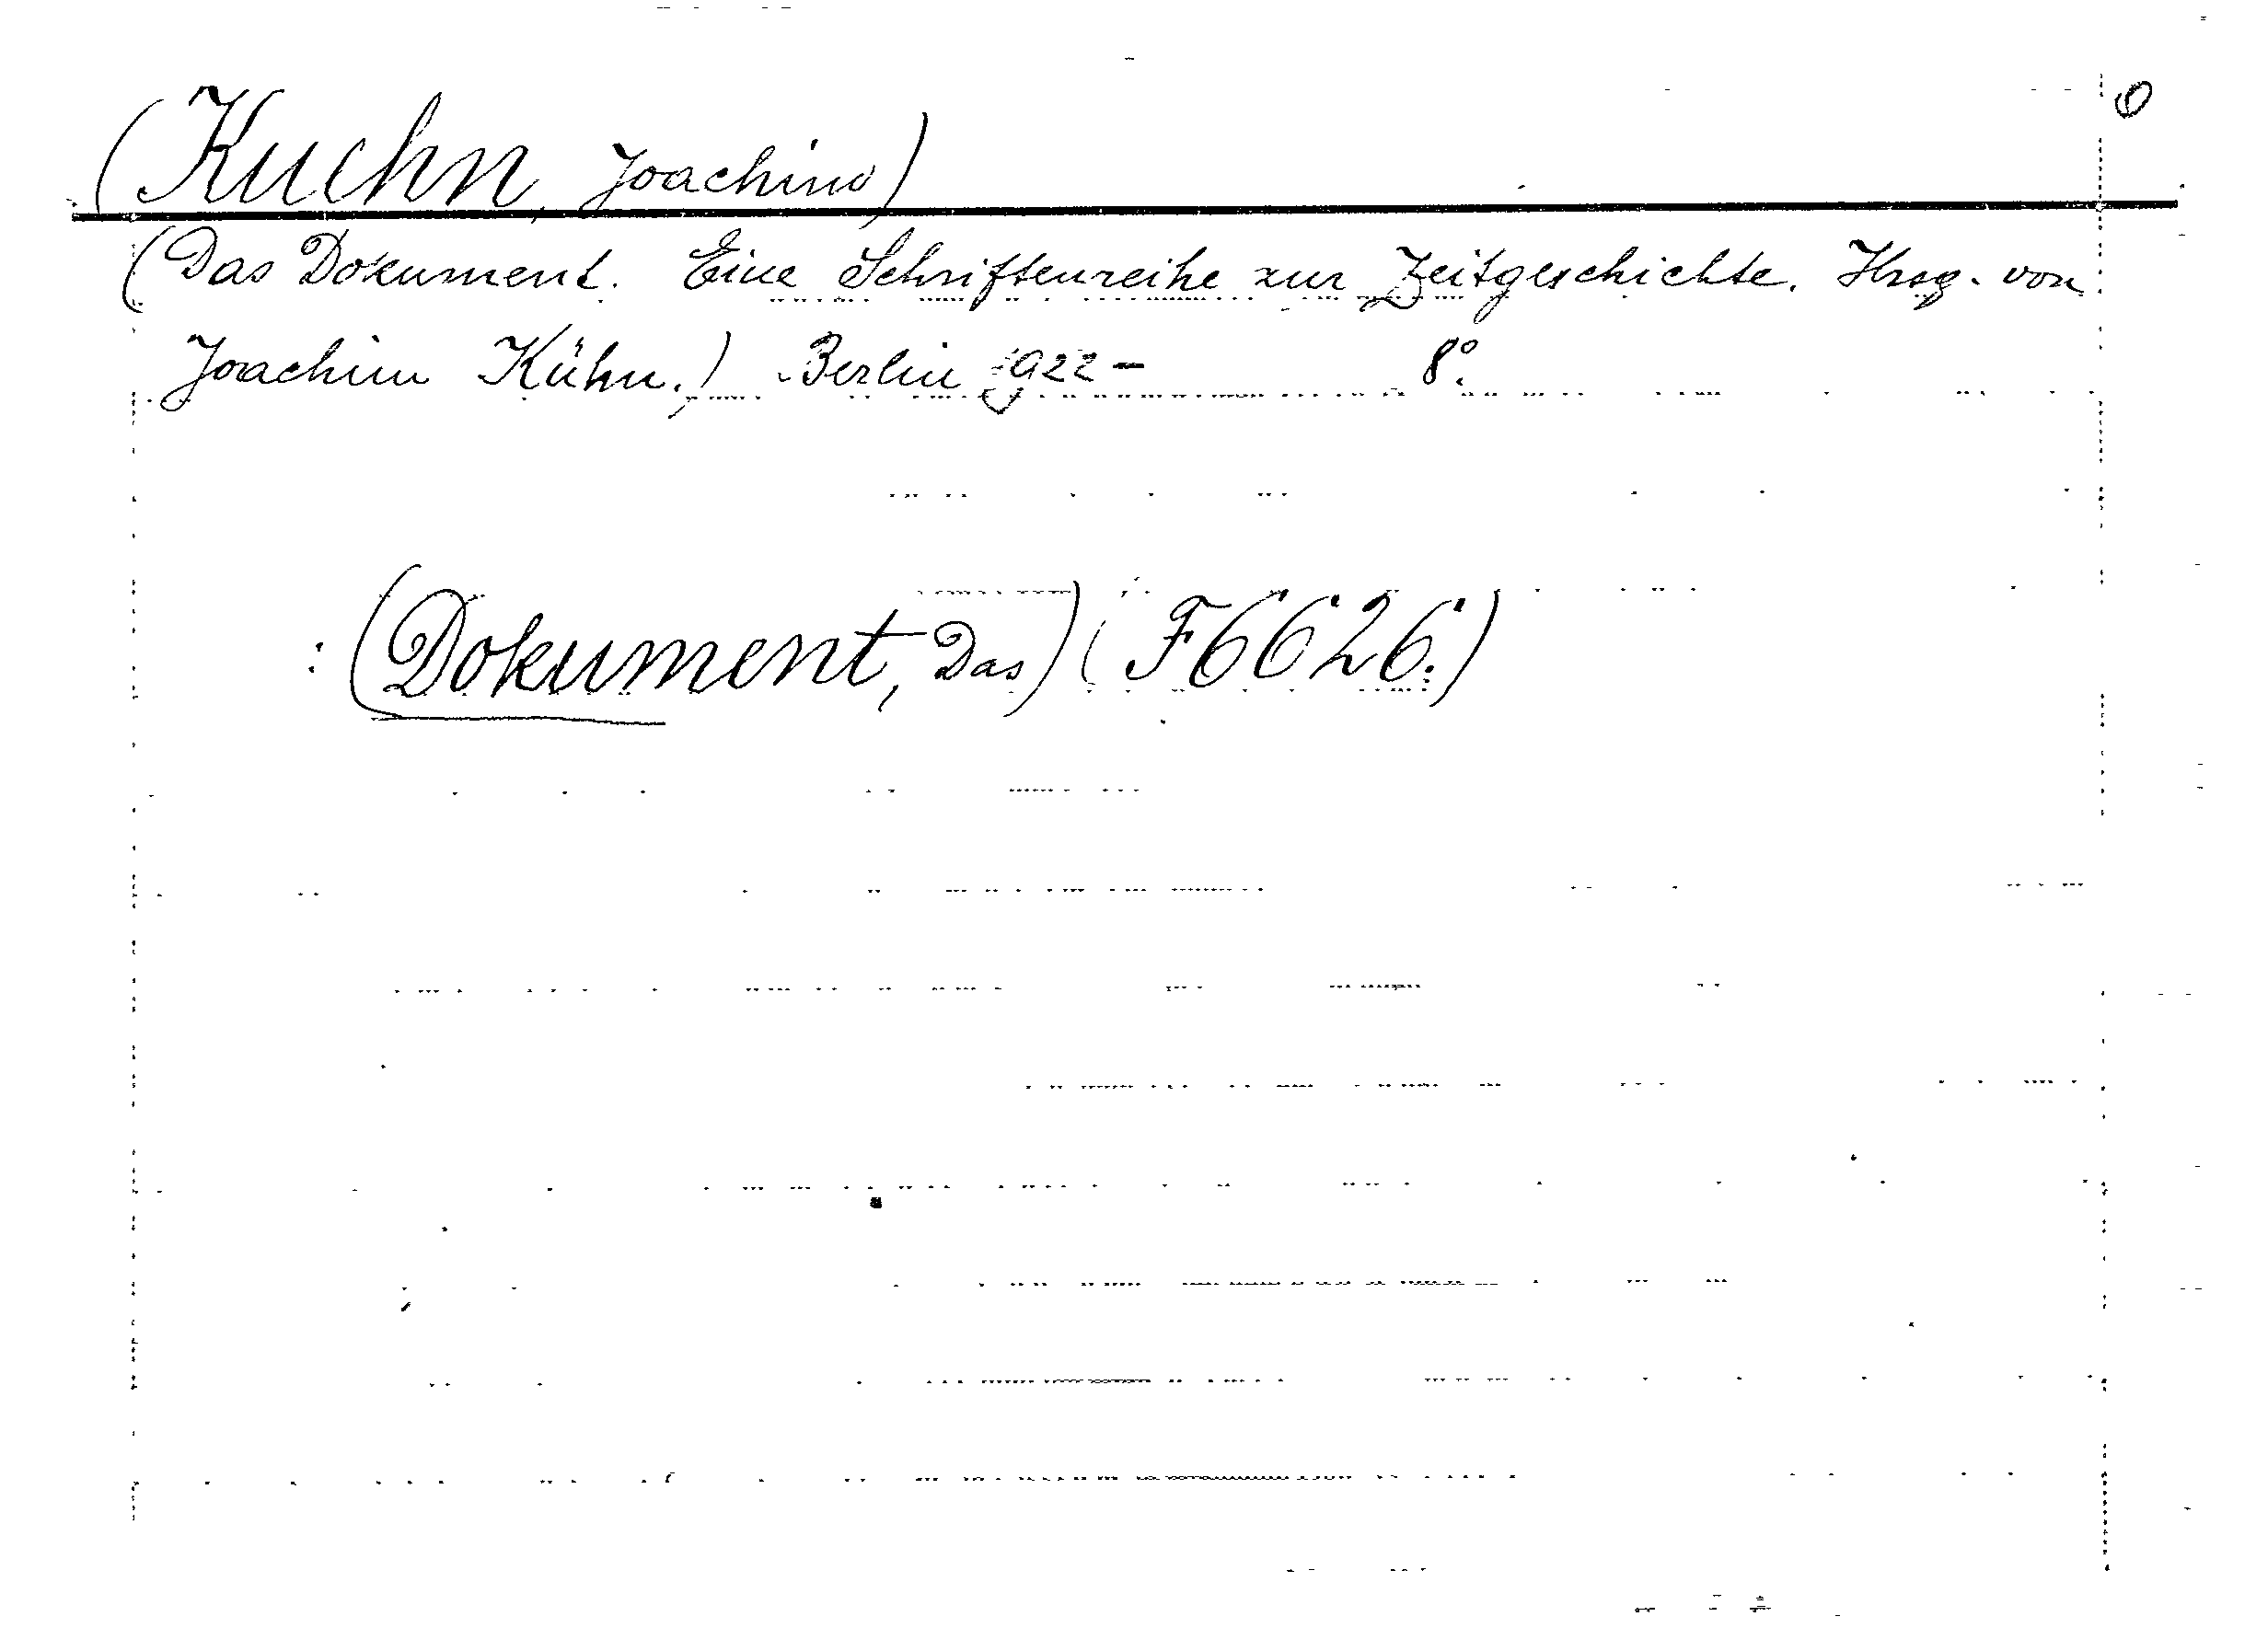 (Kuehn, Joachim)
(Das Dokument. Eine Schriftenreihe zur Zeitgeschichte. Hrsg. von
Joachim Kühn.) Berlin 1922- 8°.
: (Dokument, Das) (F6626.)